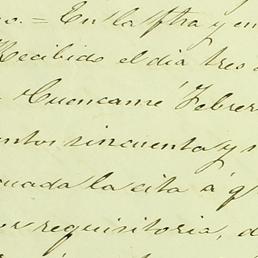 = En la ftra y en
Recibido el dia tres
Cuencamé Febrer
entos cincuenta y
cuada la cita á q
or requisitoria, d